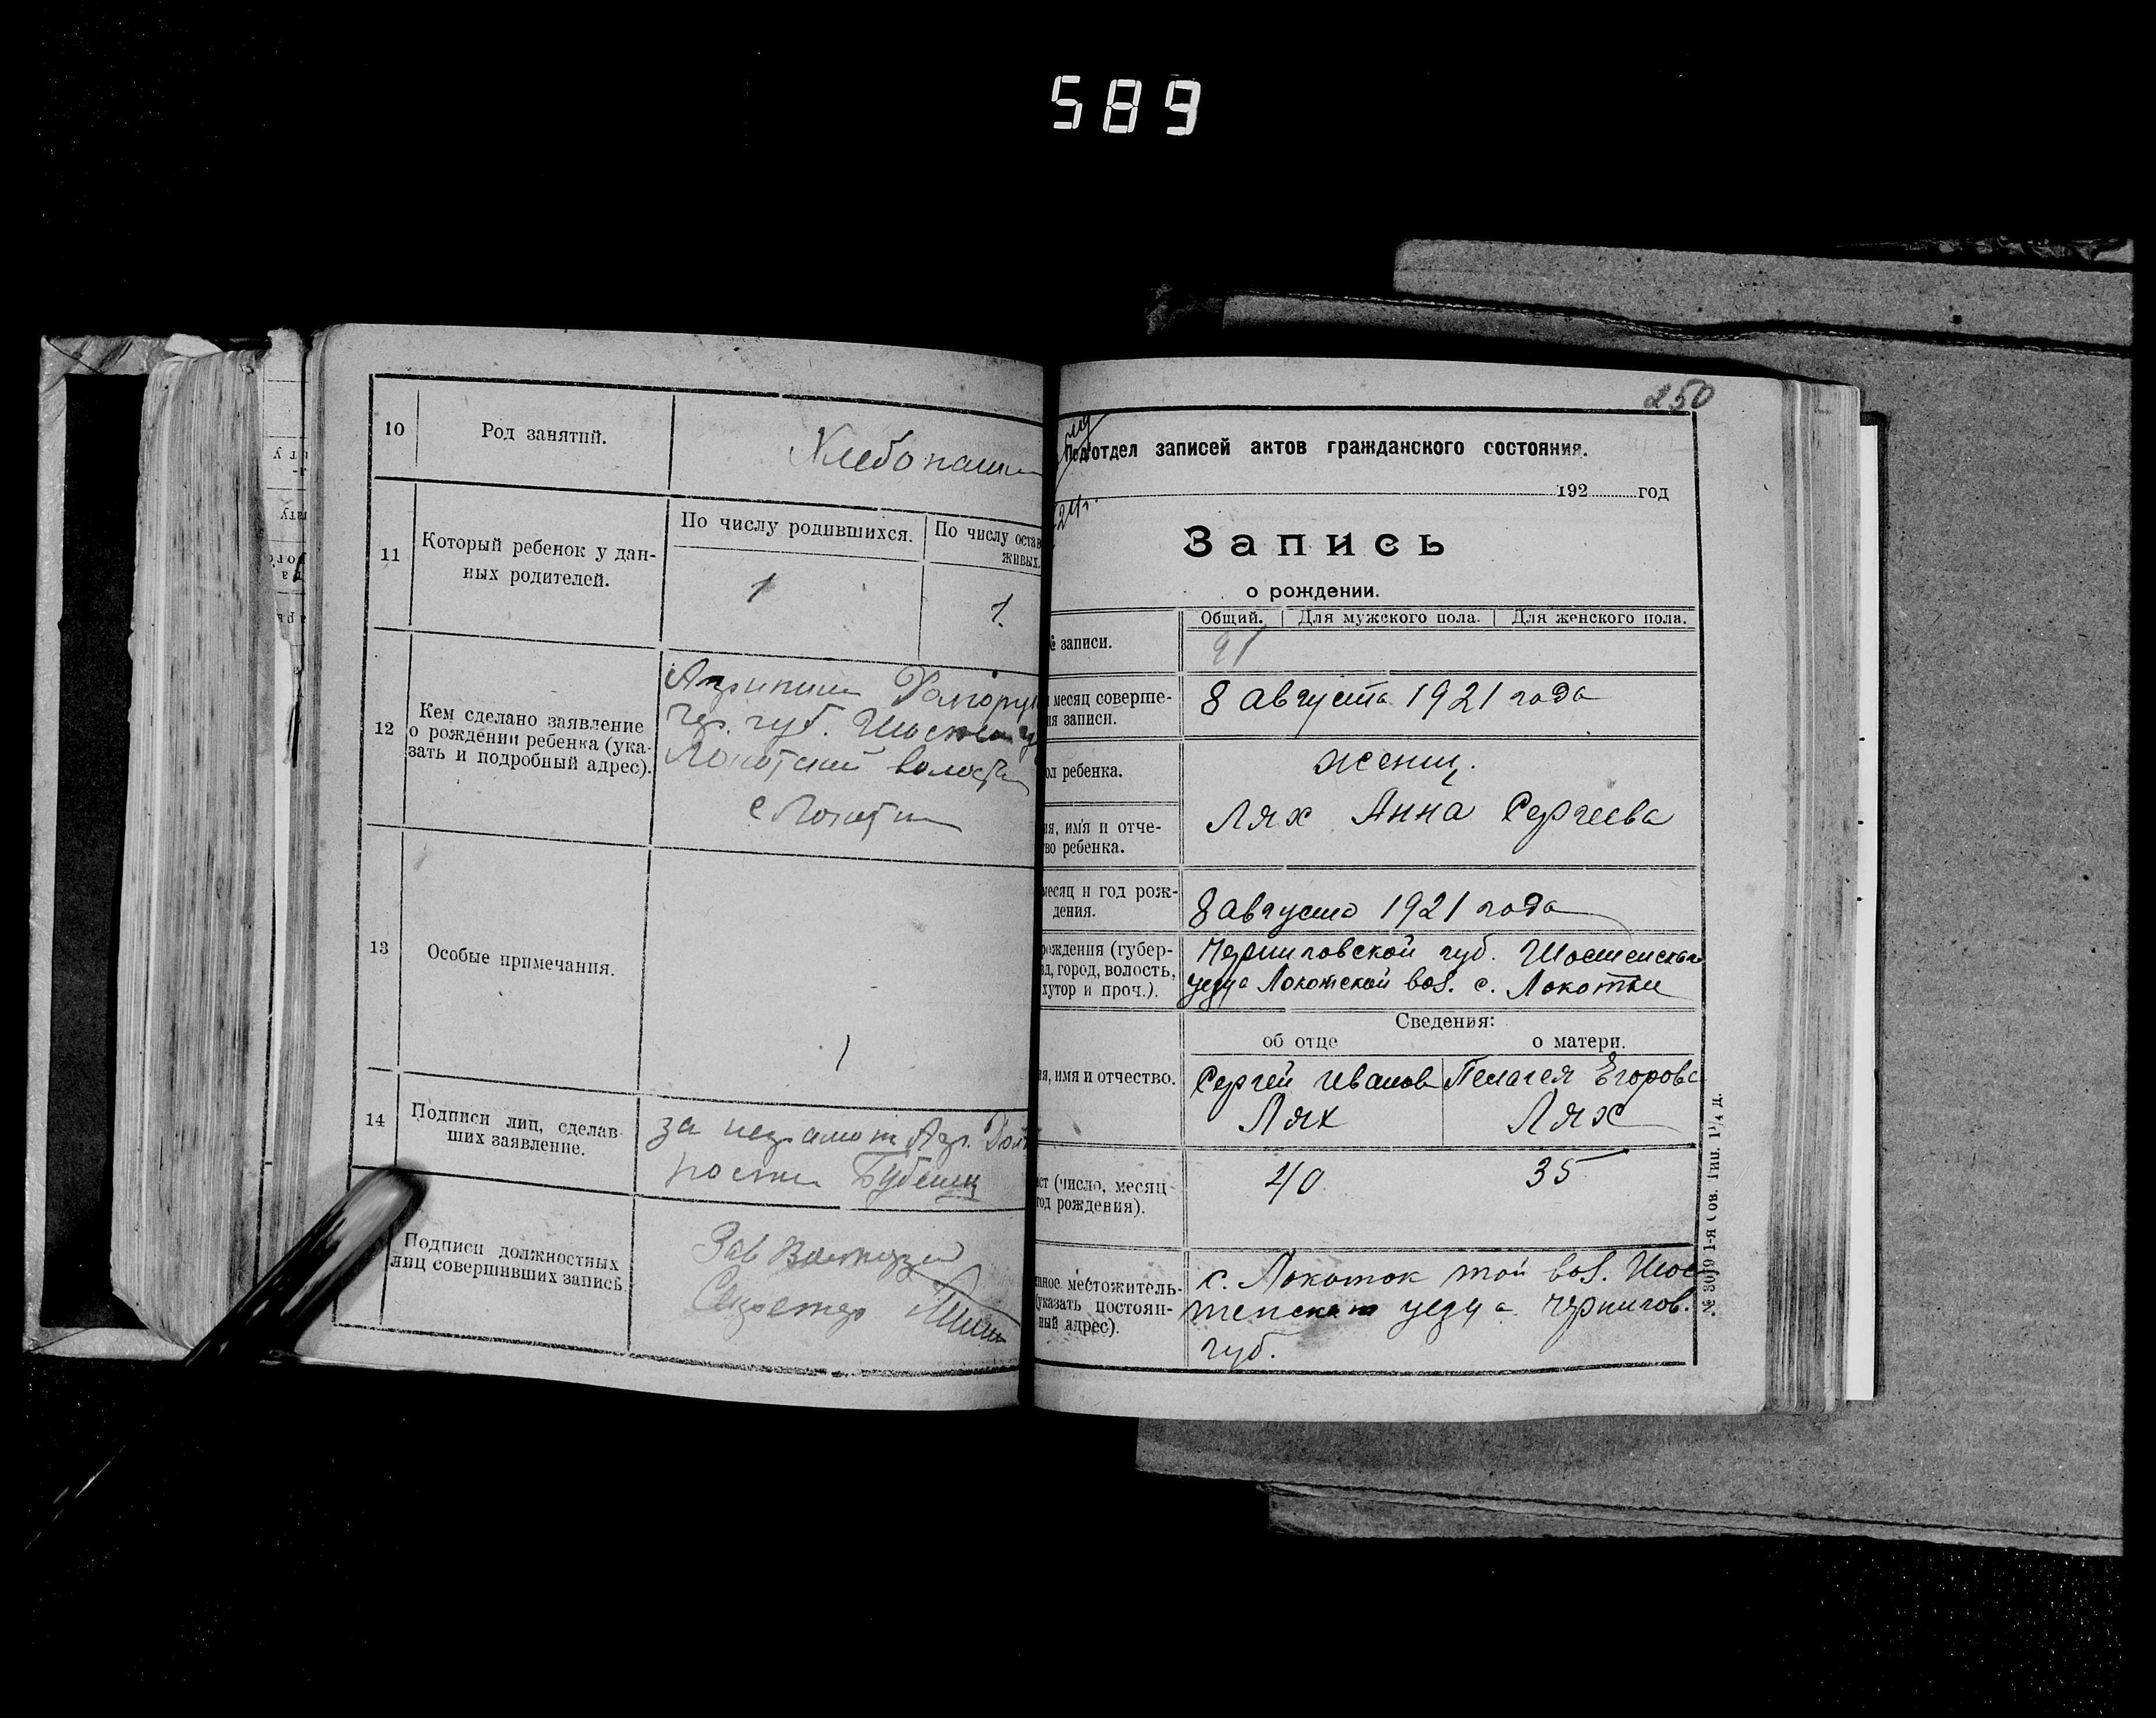 589
10
Род занятий.
11
Который ребенок у дан-
ных родителей.
По числу родившихся.
По числу остав
живых.
1
1.
12
Кем сделано заявление
о рождении ребенка (ука-
зать и подробный адрес).
губ.
волости
с
13
Особые примечания.
14
Подписи лиц, сделав-
ших заявление.
за неграмот
Подписи должностных
лиц совершивших запись
Зав
Секретарь
250
Подотдел записей актов гражданского состояния.
192 год
Запись
о рождении.
Общий. Для мужского пола. Для женского пола.
№ записи.
91
месяц соверше-
ия записи.
8 августа 1921 года
ол ребенка.
женщ.
ия, имя и отче-
во ребенка.
Лях Анна Сергеева
месяц и год рож-
дения.
8 августа 1921 года
рождения (губер-
зд, город, волость,
хутор и проч.).
Черниговской губ. Шостенского
уезда Локотской вол. с. Локотки
Сведения:
об отце
о матери.
ия, имя и отчество.
Сергей Иванов
Лях
Пелагея Егорова
Лях
ст (число, месяц
год рождения).
40
35
нное местожитель-
(указать постоян-
ный адрес).
с. Локоток той вол. Шос
тенского уезда Чернигов.
губ.
№ 3019 1-я Сов. Тип. 1¼ д.